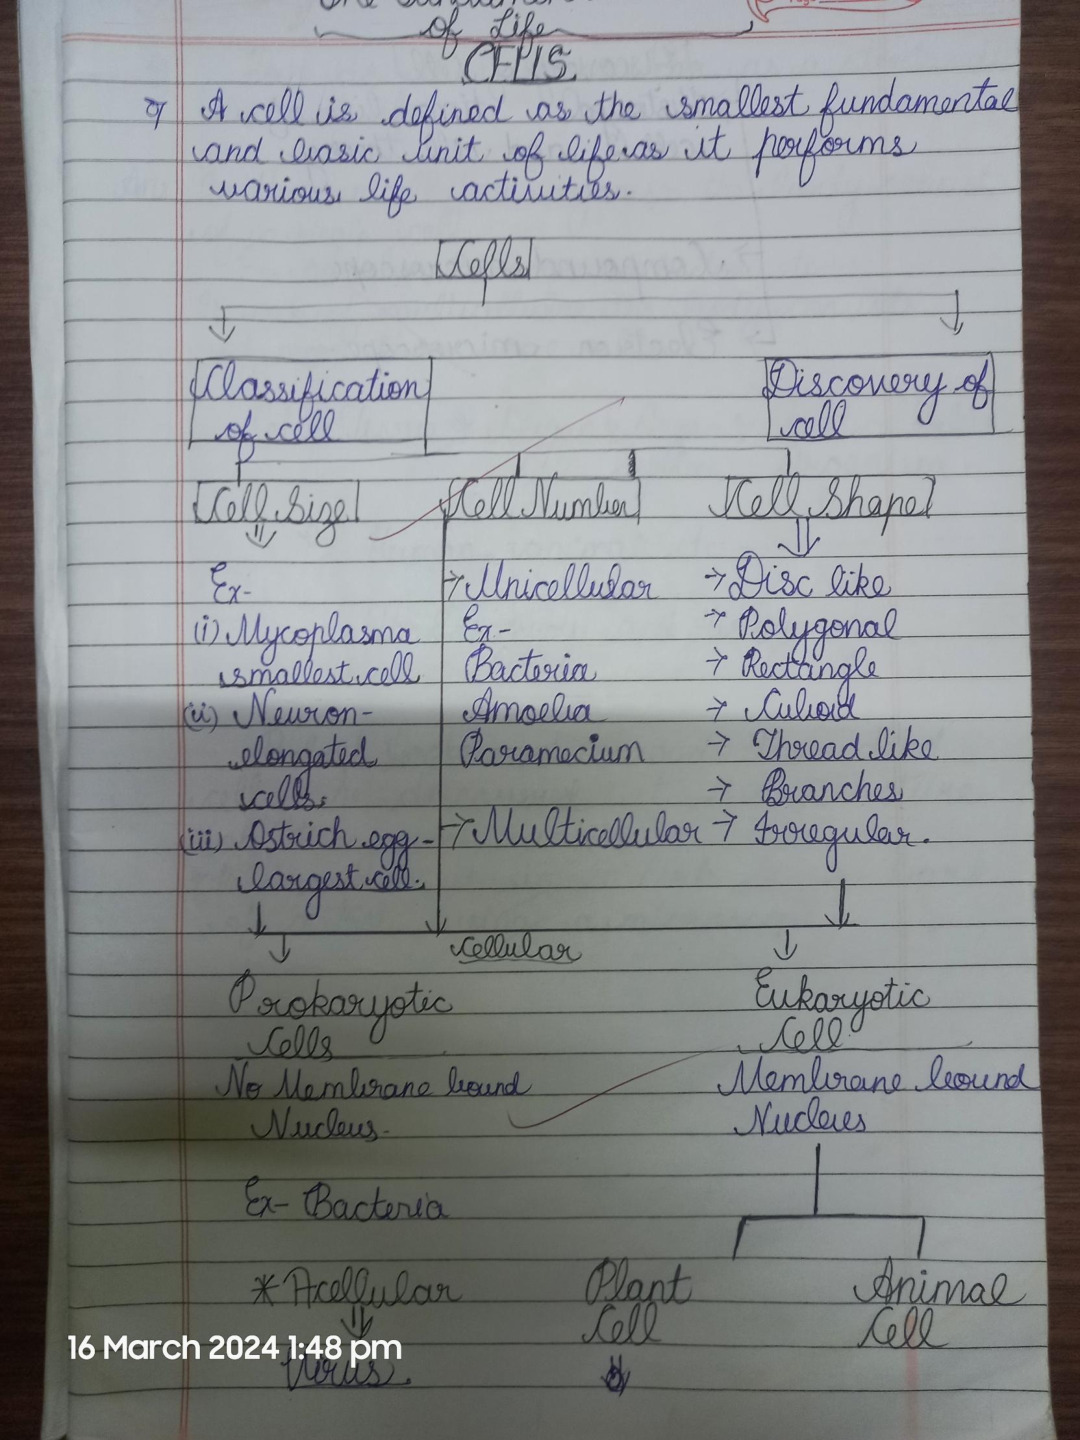 of Life
CELLS
A cell is defined as the smallest fundamental
and basic unit of life as it performs
various life activities.
Cells
Classification
of cell
Discovery of
cell
Cell Size
Cell Number
Cell Shape
Ex-
(i) Mycoplasma
smallest cell
(ii) Neuron-
elongated
cells.
(iii) Ostrich egg-
largest cell.
→ Unicellular
Ex-
Bacteria
Amoeba
Paramecium
→ Multicellular
→ Disc like
→ Polygonal
→ Rectangle
→ Cuboid
→ Thread like
→ Branches
→ Irregular.
Cellular
Prokaryotic
Cells
No Membrane bound
Nucleus.
Ex- Bacteria
Eukaryotic
Cell
Membrane bound
Nucleus
* Acellular
Virus.
Plant
Cell
Animal
Cell
16 March 2024 1:48 pm